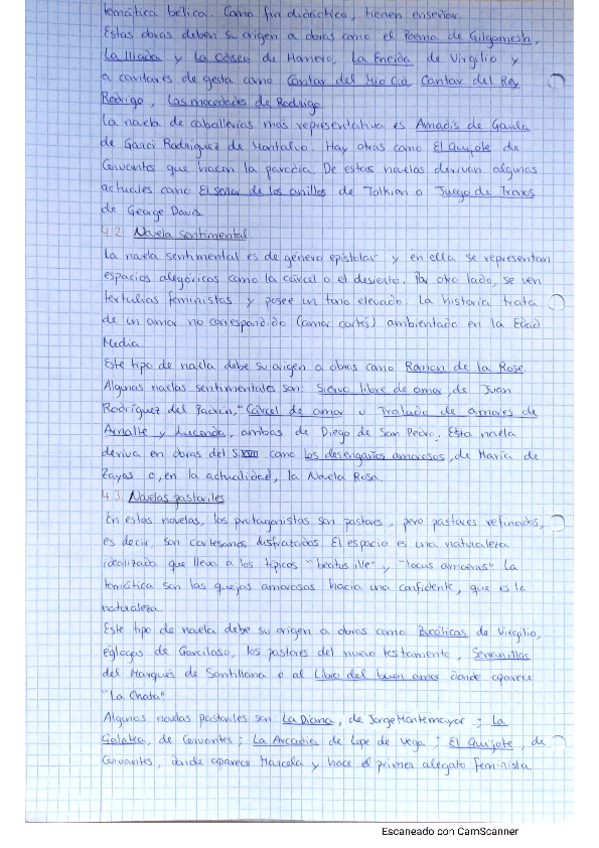 temática bélica. Como fin didáctico, tienen enseñar.
Estas obras deben su origen a obras como el Poema de Gilgamesh,
La Iliada y La Odisea de Homero, La Eneida de Virgilio y
a cantares de gesta como Cantar del Mio Cid, Cantar del Rey
Rodrigo, Las mocedades de Rodrigo
La novela de caballerías más representativa es Amadís de Gaula
de Garci Rodríguez de Montalvo. Hay otras como El Quijote de
Cervantes que hacen la parodia. De estas novelas derivan algunas
actuales como El señor de los anillos de Tolkian o Juego de Tronos
de George Davis
4.2. Novela sentimental
La novela sentimental es de género epistolar y en ella se representan
espacios alegóricos como la cárcel o el desierto. Por otro lado, se ven
tertulias feministas y posee un tono elevado. La historia trata
de un amor no correspondido (amor cortés) ambientado en la Edad
Media.
Este tipo de novela debe su origen a obras como Roman de la Rose
Algunas novelas sentimentales son: Siervo libre de amor, de Juan
Rodríguez del Padrón, Cárcel de amor o Tratado de amores de
Arnalte y Lucenda, ambas de Diego de San Pedro. Esta novela
deriva en obras del S como los desengaños amorosos, de María de
Zayas o, en la actualidad, la Novela Rosa.
4.3. Novelas pastoriles
En estas novelas, los protagonistas son pastores, pero pastores refinados,
es decir, son cortesanos disfrazados. El espacio es una naturaleza
idealizada que lleva a los tópicos "beatus ille" y "locus amoenus" La
temática son las quejas amorosas hacia una confidente, que es la
naturaleza.
Este tipo de novela debe su origen a obras como Bucólicas de Virgilio,
églogas de Garcilaso, los pastores del nuevo testamento, Serranillas
del Marqués de Santillana o al Libro del buen amor donde aparece
"La Chata"
Algunas novelas pastoriles son: La Diana, de Jorge Montemayor; La
Galatea, de Cervantes; La Arcadia de Lope de Vega; El Quijote, de
Cervantes, donde aparece Marcela y hace el primer alegato feminista
Escaneado con CamScanner